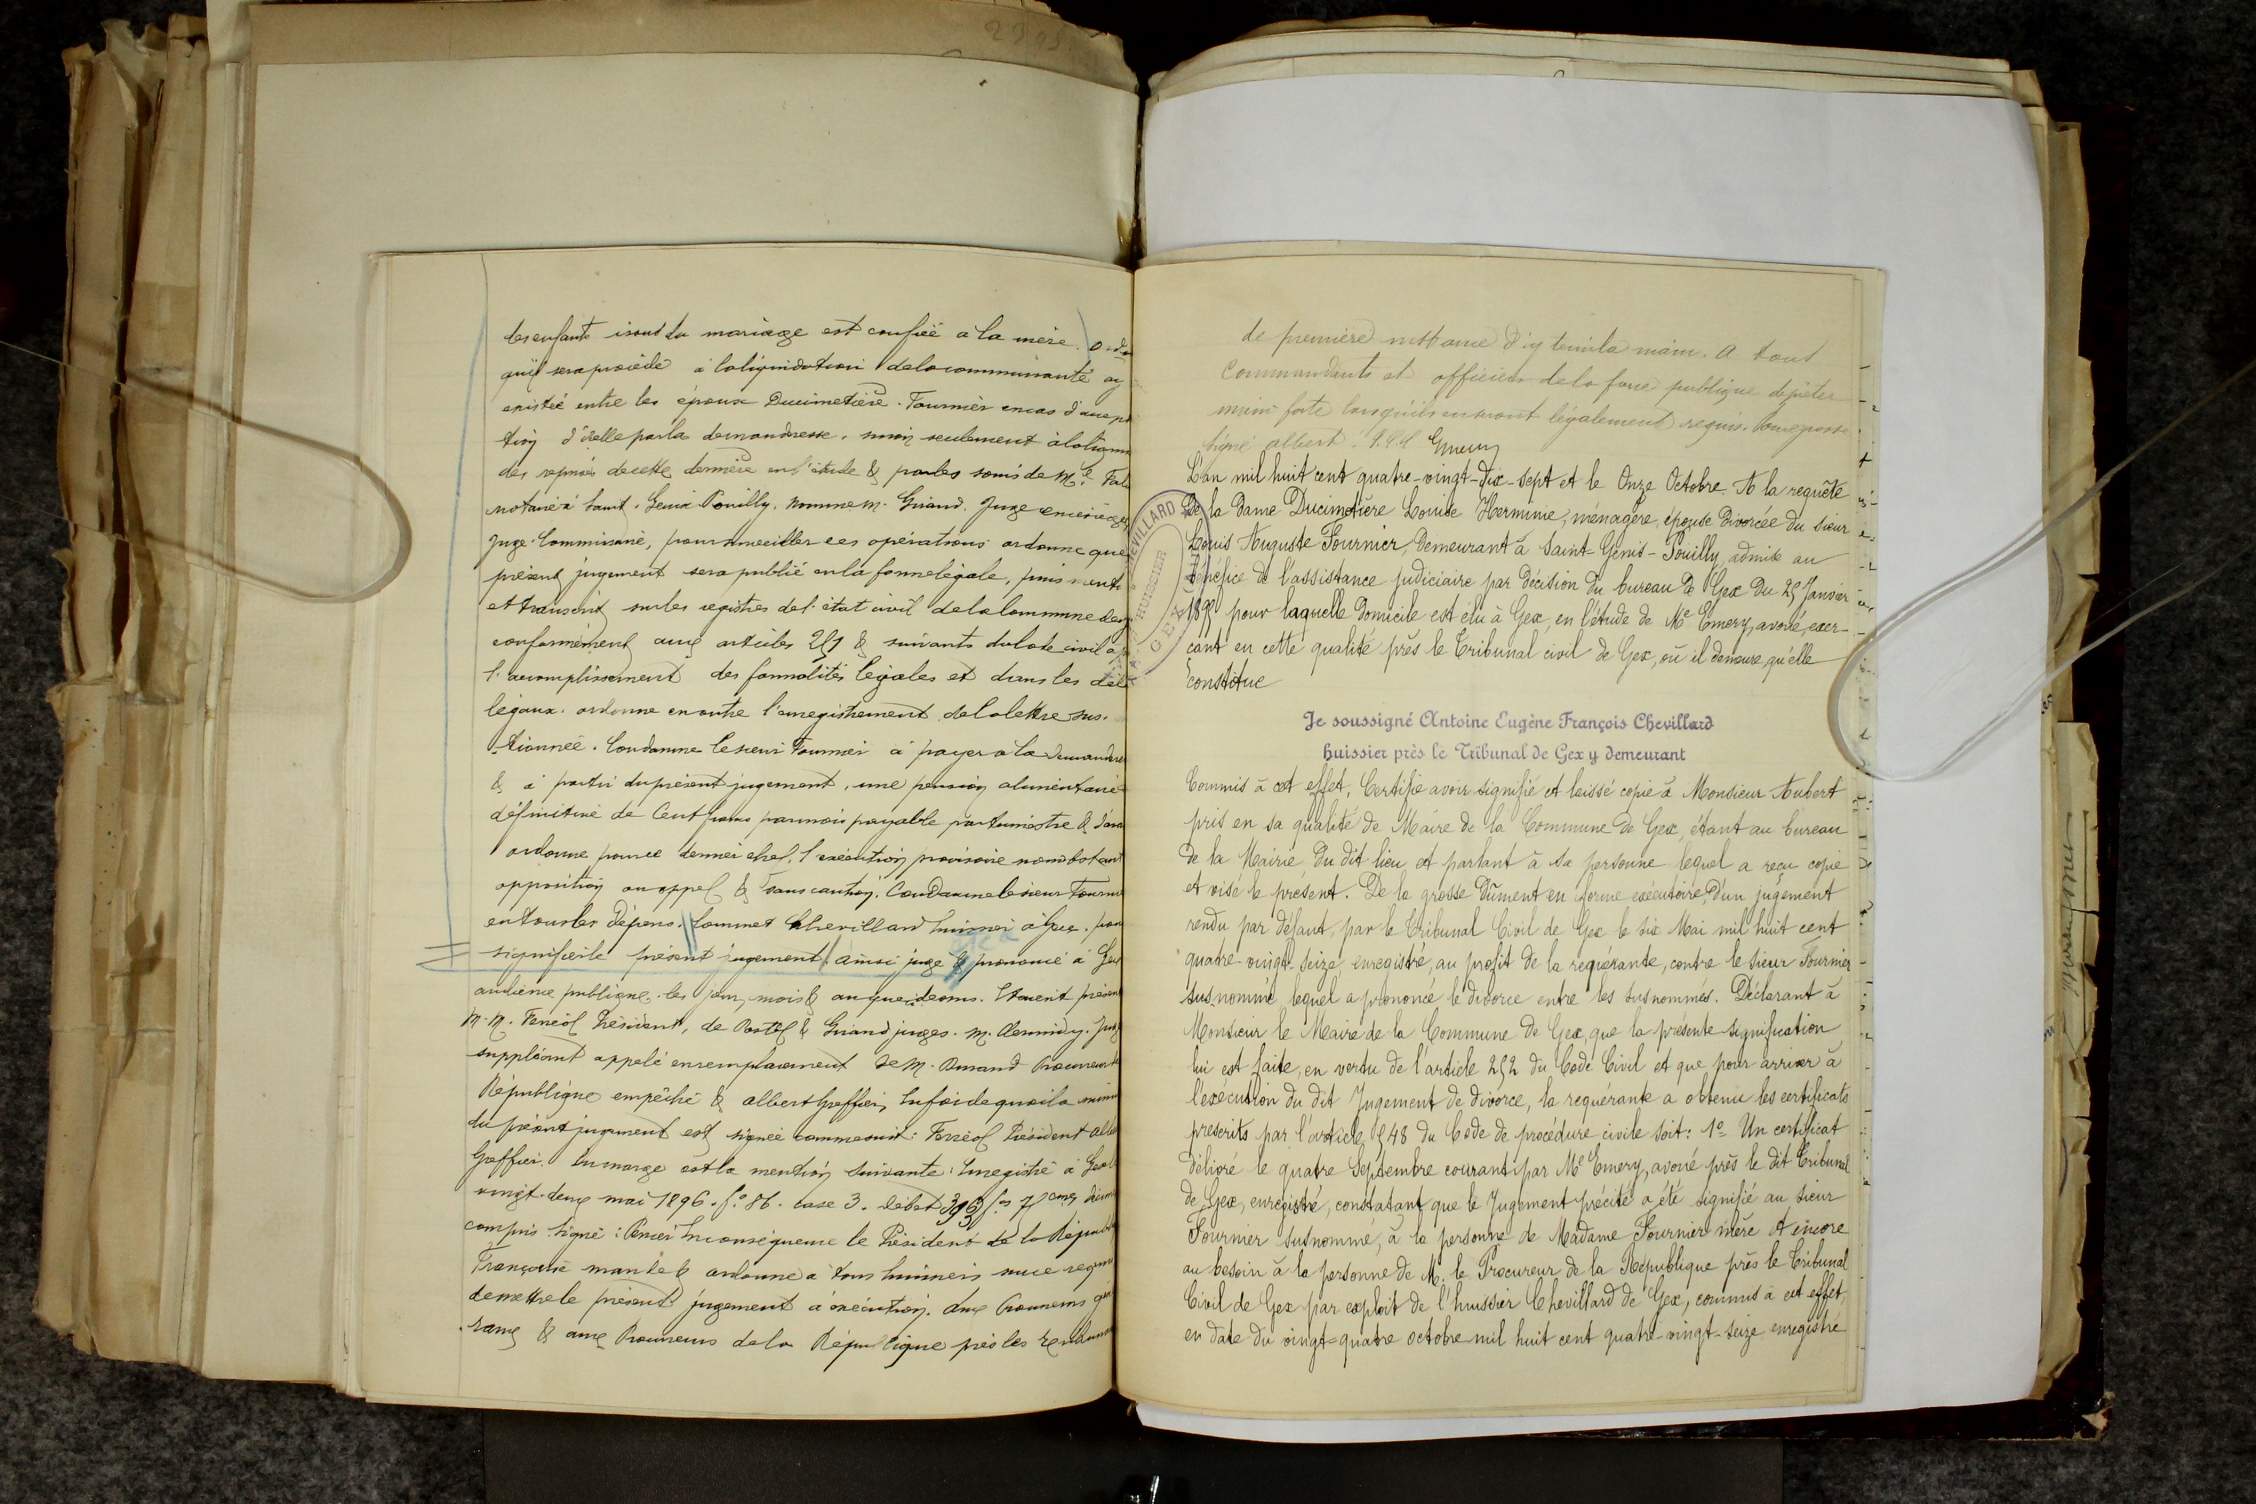 des enfants issus du mariage est confiée à la mère. Ordon
qu'il sera procédé à la liquidation de la communauté ay
existée entre les époux Ducimetière-Fournier en cas d'accep
tion d'icelle par la demanderesse,
des reprises de cette dernière en l'étude & par les soins de Me
notaire à Saint-Genix Pouilly, nomme M. Girand. Juge
Juge-Commissaire, pour surveiller ces opérations ordonne que
présent jugement sera publié en la forme légale, puis ment
et transcrit sur les registres de l'état civil de la Commune de
conformément aux articles 251 & suivants du Code civil ap
l'accomplissement des formalités légales et dans les dél
légaux. ordonne en outre l'enregistrement de la lettre sus-
-tionnée. Condamne le sieur Fournier à payer à la demander
& à partir du présent jugement, une pension alimentaire
définitive de Cent francs par mois payable par trimestre & d'ava
ordonne pour ce dernier chef, l'exécution provisoire nonobstant
opposition ou appel & sans caution. Condamne le sieur Fournie
en tous les dépens. Commet Chevillard huissier à Gex. pour
signifier le présent jugement. Ainsi jugé & prononcé à Gex
audience publique, les jour, mois & an que dessus. Etaient présent
M.M. Feréol Président, de Postel & Girand juges. M.
suppléant appelé en remplacement de M. Durand Procureur
République empêché & Albert Greffier, En foi de quoi la minu
du présent jugement est signée comme suit: Feréol Président Albe
Greffier. En marge est la mention suivante: Enregistré à Gex le
vingt-deux mai 1896. f° 86. case 3. Débet
compris. Signé: En conséquence le Président de la Républi
Française mande & ordonne à tous huissiers sur ce requis
de mettre le présent jugement à exécution. Aux Procureurs gén
-raux & aux Procureurs de la République près les Tribunau
de première instance d'y tenir la main. A tous
Commandants et officiers de la force publique de prêter
main forte lorsqu'ils en seront légalement requis. Pour grosse
Signé Albert. P.C.C Emery
L'an mil huit cent quatre-vingt-dix-sept et le Onze Octobre. A la requête
De la Dame Ducimetière Louise Hermine, ménagère, épouse divorcée du sieur
Louis Auguste Fournier, demeurant à Saint-Genis-Pouilly, admise au
bénéfice de l'assistance judiciaire par décision du bureau de Gex du 25 Janvier
pour laquelle domicile est élu à Gex, en l'étude de Me Emery, avoué, exer-
çant en cette qualité près le Tribunal civil de Gex, où il demeure, qu'elle
constitue
CHEVILLARD
HUISSIER
GEX
Je soussigné Antoine Eugène François Chevillard
huissier près le Tribunal de Gex y demeurant
Commis à cet effet, Certifie avoir signifié et laissé copie à Monsieur Aubert
pris en sa qualité de Maire de la Commune de Gex, étant au bureau
de la Mairie du dit lieu et parlant à sa personne lequel a reçu copie
et visé le présent. De la grosse dûment en forme exécutoire, d'un jugement
rendu par défaut, par le Tribunal Civil de Gex le six Mai mil huit cent
quatre-vingt-seize, enregistré, au profit de la requérante, contre le sieur Fournier
susnommé, lequel a prononcé le divorce entre les susnommés. Déclarant à
Monsieur le Maire de la Commune de Gex, que la présente signification
lui est faite, en vertu de l'article 252 du Code Civil et que pour arriver à
l'exécution du dit Jugement de divorce, la requérante a obtenu les certificats
prescrits par l'article 548 du Code de procédure civile soit: 1° Un certificat
délivré le quatre Septembre courant par Me Emery, avoué près le dit Tribunal
de Gex, enregistré, constatant que le Jugement précité a été signifié au sieur
Fournier susnommé, à la personne de Madame Fournier mère et encore
au besoin à la personne de M. le Procureur de la République près le Tribunal
Civil de Gex par exploit de l'huissier Chevillard de Gex, commis à cet effet,
en date du vingt-quatre octobre mil huit cent quatre-vingt-seize enregistré